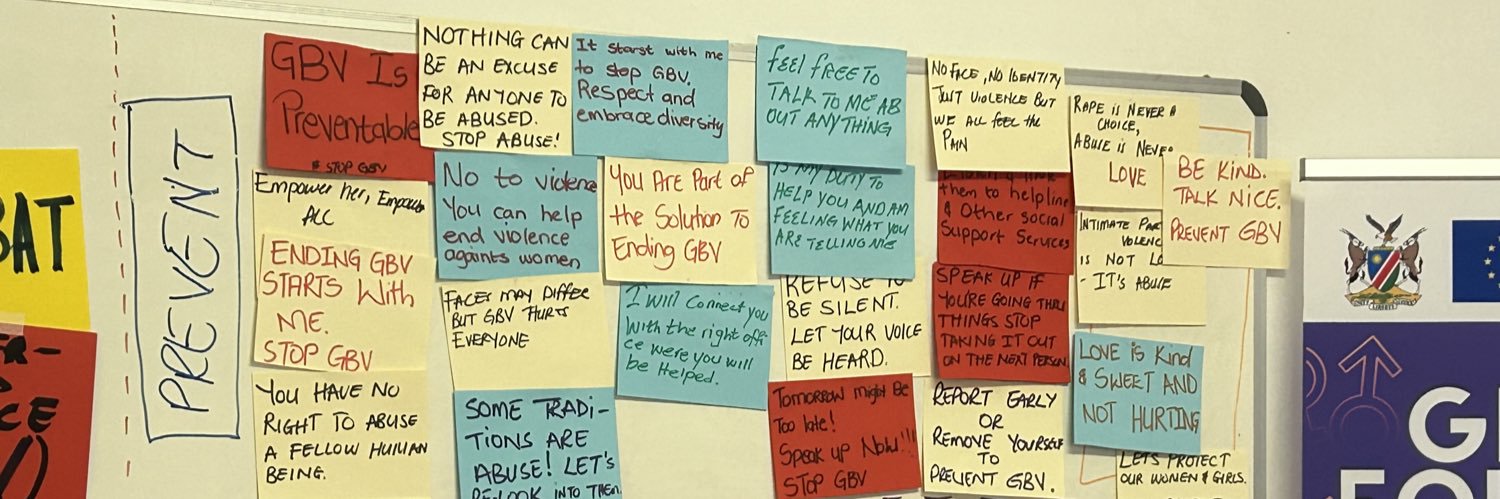 BAT
CE
PREVENT
GBV Is
Preventable
# STOP GBV
Empower her, Empower
ALL
ENDING GBV
STARTS With
ME.
STOP GBV
YOU HAVE NO
RIGHT TO ABUSE
A FELLOW HUMAN
BEING.
NOTHING CAN
BE AN EXCUSE
FOR ANYONE TO
BE ABUSED.
STOP ABUSE!
No to violence
You can help
end violence
againts women
FACES MAY DIFFER
BUT GBV HURTS
EVERYONE
SOME TRADI-
TIONS ARE
ABUSE! LET'S
RE-LOOK INTO THEM.
It starst with me
to stop GBV.
Respect and
embrace diversity
You Are Part of
the Solution To
Ending GBV
I will connect you
with the right offi
ce were you will
be Helped.
feel free to
TALK TO ME AB
OUT ANYTHING
IS MY DUTY TO
HELP YOU AND AM
FEELING WHAT YOU
ARE TELLING ME
REFUSE TO
BE SILENT.
LET YOUR VOICE
BE HEARD.
Tomorrow might Be
Too late!
Speak up Now!!!
STOP GBV
NO FACE, NO IDENTITY
JUST VIOLENCE BUT
WE ALL feel the
PAIN
them to helpline
& Other social
Support Services
SPEAK UP IF
YOU'RE GOING THRU
THINGS STOP
TAKING IT OUT
ON THE NEXT PERSON.
REPORT EARLY
OR
REMOVE YOURSELF
TO
PREVENT GBV.
RAPE is NEVER A
CHOICE,
ABUSE is NEVER
LOVE
INTIMATE
VIOLENC
is NOT LO
- IT'S ABUSE
BE KIND.
TALK NICE.
PREVENT GBV
LOVE is Kind
& SWEET AND
NOT HURTING
LETS PROTECT
OUR WOMEN & GIRLS.
G
FO